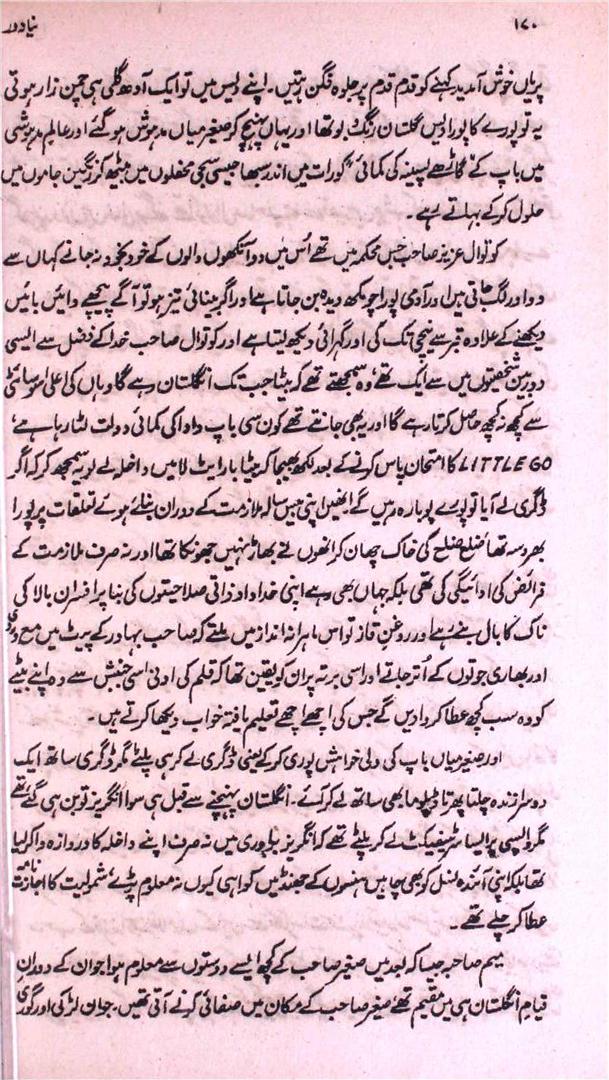 ۱۷۰ نیا دور
پریاں خوش آمدید کہنے کو قدم قدم پر جلوہ فگن ہتیں۔ اپنے دیس میں تو ایک آدھ گلی ہی چمن زار ہوتی
یہ تو پورے کا پورا دیس گلستان رنگ و بو تھا اور یہاں پہنچ کر صغیر میاں مدہوش ہو گئے اور عالم مدہوشی
میں باپ کے گاڑھے پسینہ کی کمائی کو رات میں اندر سبھا جیسی سجی محفلوں میں بیٹھ کر رنگین جاموں میں
حلول کر کے بہاتے رہے۔
کوتوال عزیز صاحب جس محکمہ میں تھے اُس میں دو آنکھوں والوں کے خود بخود نہ جانے کہاں سے
دو اور لگ جاتی ہیں اور آدمی پورا چومکھ دیدہ بن جاتا ہے اور اگر بینائی تیز ہو تو آگے پیچھے دائیں بائیں
دیکھنے کے علاوہ قبر سے نیچی تک کی اور گہرائی دیکھ لیتا ہے اور کوتوال صاحب خدا کے فضل سے ایسی
دوربین شخصیتوں میں سے ایک تھے، وہ سمجھتے تھے کہ بیٹا جب تک انگلستان رہے گا وہاں کی اعلیٰ سوسائٹی
سے کچھ نہ کچھ حاصل کرتا رہے گا اور یہ بھی جانتے تھے کون سی باپ دادا کی کمائی دولت لٹا رہا ہے،
LITTLE GO کا امتحان پاس کرنے کے بعد لکھ بھیجا کہ بیٹا بار ایٹ لا میں داخلہ لے لو یہ سمجھ کر کہ اگر
ڈگری لے آیا تو پورے پوبارہ رہیں گے انھیں اپنی بیس سالہ ملازمت کے دوران بنائے ہوئے تعلقات پر پورا
بھروسہ تھا ضلع ضلع کی خاک چھان کر انھوں نے بھاڑ نہیں جھونکا تھا اور نہ صرف ملازمت کے
فرائض کی ادائیگی کی تھی بلکہ جہاں بھی رہے اپنی خداداد ذاتی صلاحیتوں کی بنا پر افسران بالا کی
ناک کا بال بنے رہے اور روغنِ قاز تو اس ماہرانہ انداز میں ملتے کہ صاحب بہادر کے پیٹ میں مع
اور بھاری جوتوں کے اُتر جاتے اور اسی برتہ پر ان کو یقین تھا کہ قلم کی ادنیٰ اسی جنبش سے وہ اپنے بیٹے
کو وہ سب کچھ عطا کروا دیں گے جس کی اچھے اچھے تعلیم یافتہ خواب دیکھا کرتے ہیں۔
اور صغیر میاں باپ کی دلی خواہش پوری کر کے یعنی ڈگری لے کر ہی پلٹے مگر ڈگری ساتھ ایک
دوسرا زندہ چلتا پھرتا ڈپلوما بھی ساتھ لے کر آئے۔ انگلستان پہنچنے سے قبل ہی سوا انگریز تو بن ہی گئے تھے
مگر واپسی پر ایسا سرٹیفیکٹ لے کر پلٹے تھے کہ انگریز برادری میں نہ صرف اپنے داخلہ کا دروازہ وا کر لیا
تھا بلکہ اپنی آئندہ نسل کو بھی چاہیں ہنسوں کے جھنڈ میں کوا ہی کیوں نہ معلوم پڑے شمولیت کا اجازت نامہ
عطا کر چلے تھے۔
میم صاحبہ جیسا کہ بعد میں صغیر صاحب کے کچھ ایسے دوستوں سے معلوم ہوا جو ان کے دوران
قیام انگلستان ہی میں مقیم تھے، صغیر صاحب کے مکان میں صفائی کرنے آتی تھیں۔ جوان لڑکی اور گوری